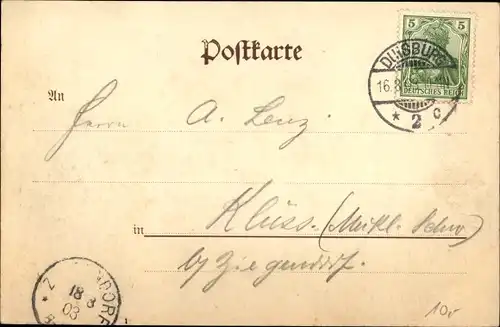 Postkarte
5 5
DEUTSCHES REICH
DUISBURG
16.8
* 2 c
An
Herrn A. Lenz
in Klüss. (Meckl. Schw.)
by Ziegendorf.
* Z NDORF
18 8
03
10,-